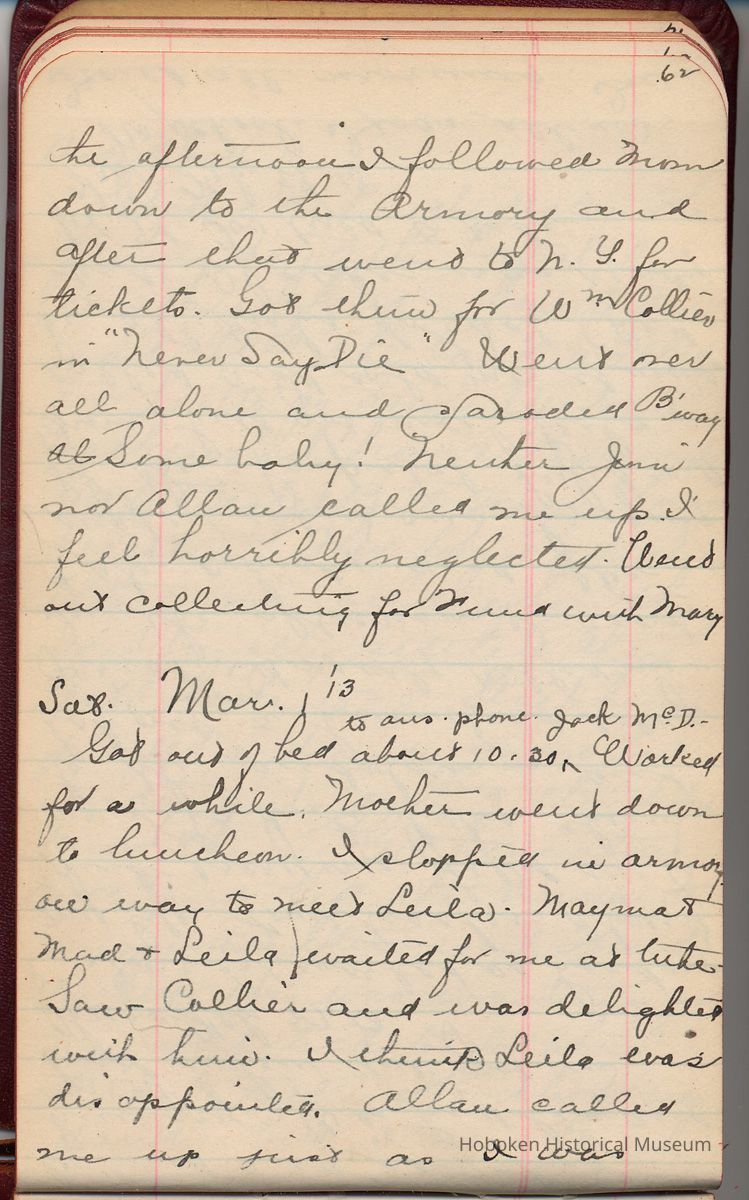 62
the afternoon I followed Mom
down to the Armory and
after that went to N. Y. for
tickets. Got them for Wm Collier
in "Never Say Die" Went over
all alone and paraded B'way
Some baby! Neither Jimi
nor Allan called me up. I
feel horribly neglected. Went
out collecting for Fund with Mary
Sat. Mar. 13
to ans. phone. Jack McD.-
Got out of bed about 10.30, Worked
for a while. Mother went down
to luncheon. I stopped in armory
on way to meet Leila. Mayma &
Mad & Leila waited for me at tube.
Saw Collier and was delighted
with him. I think Leila was
disappointed. Allan called
me up just as I was
Hoboken Historical Museum